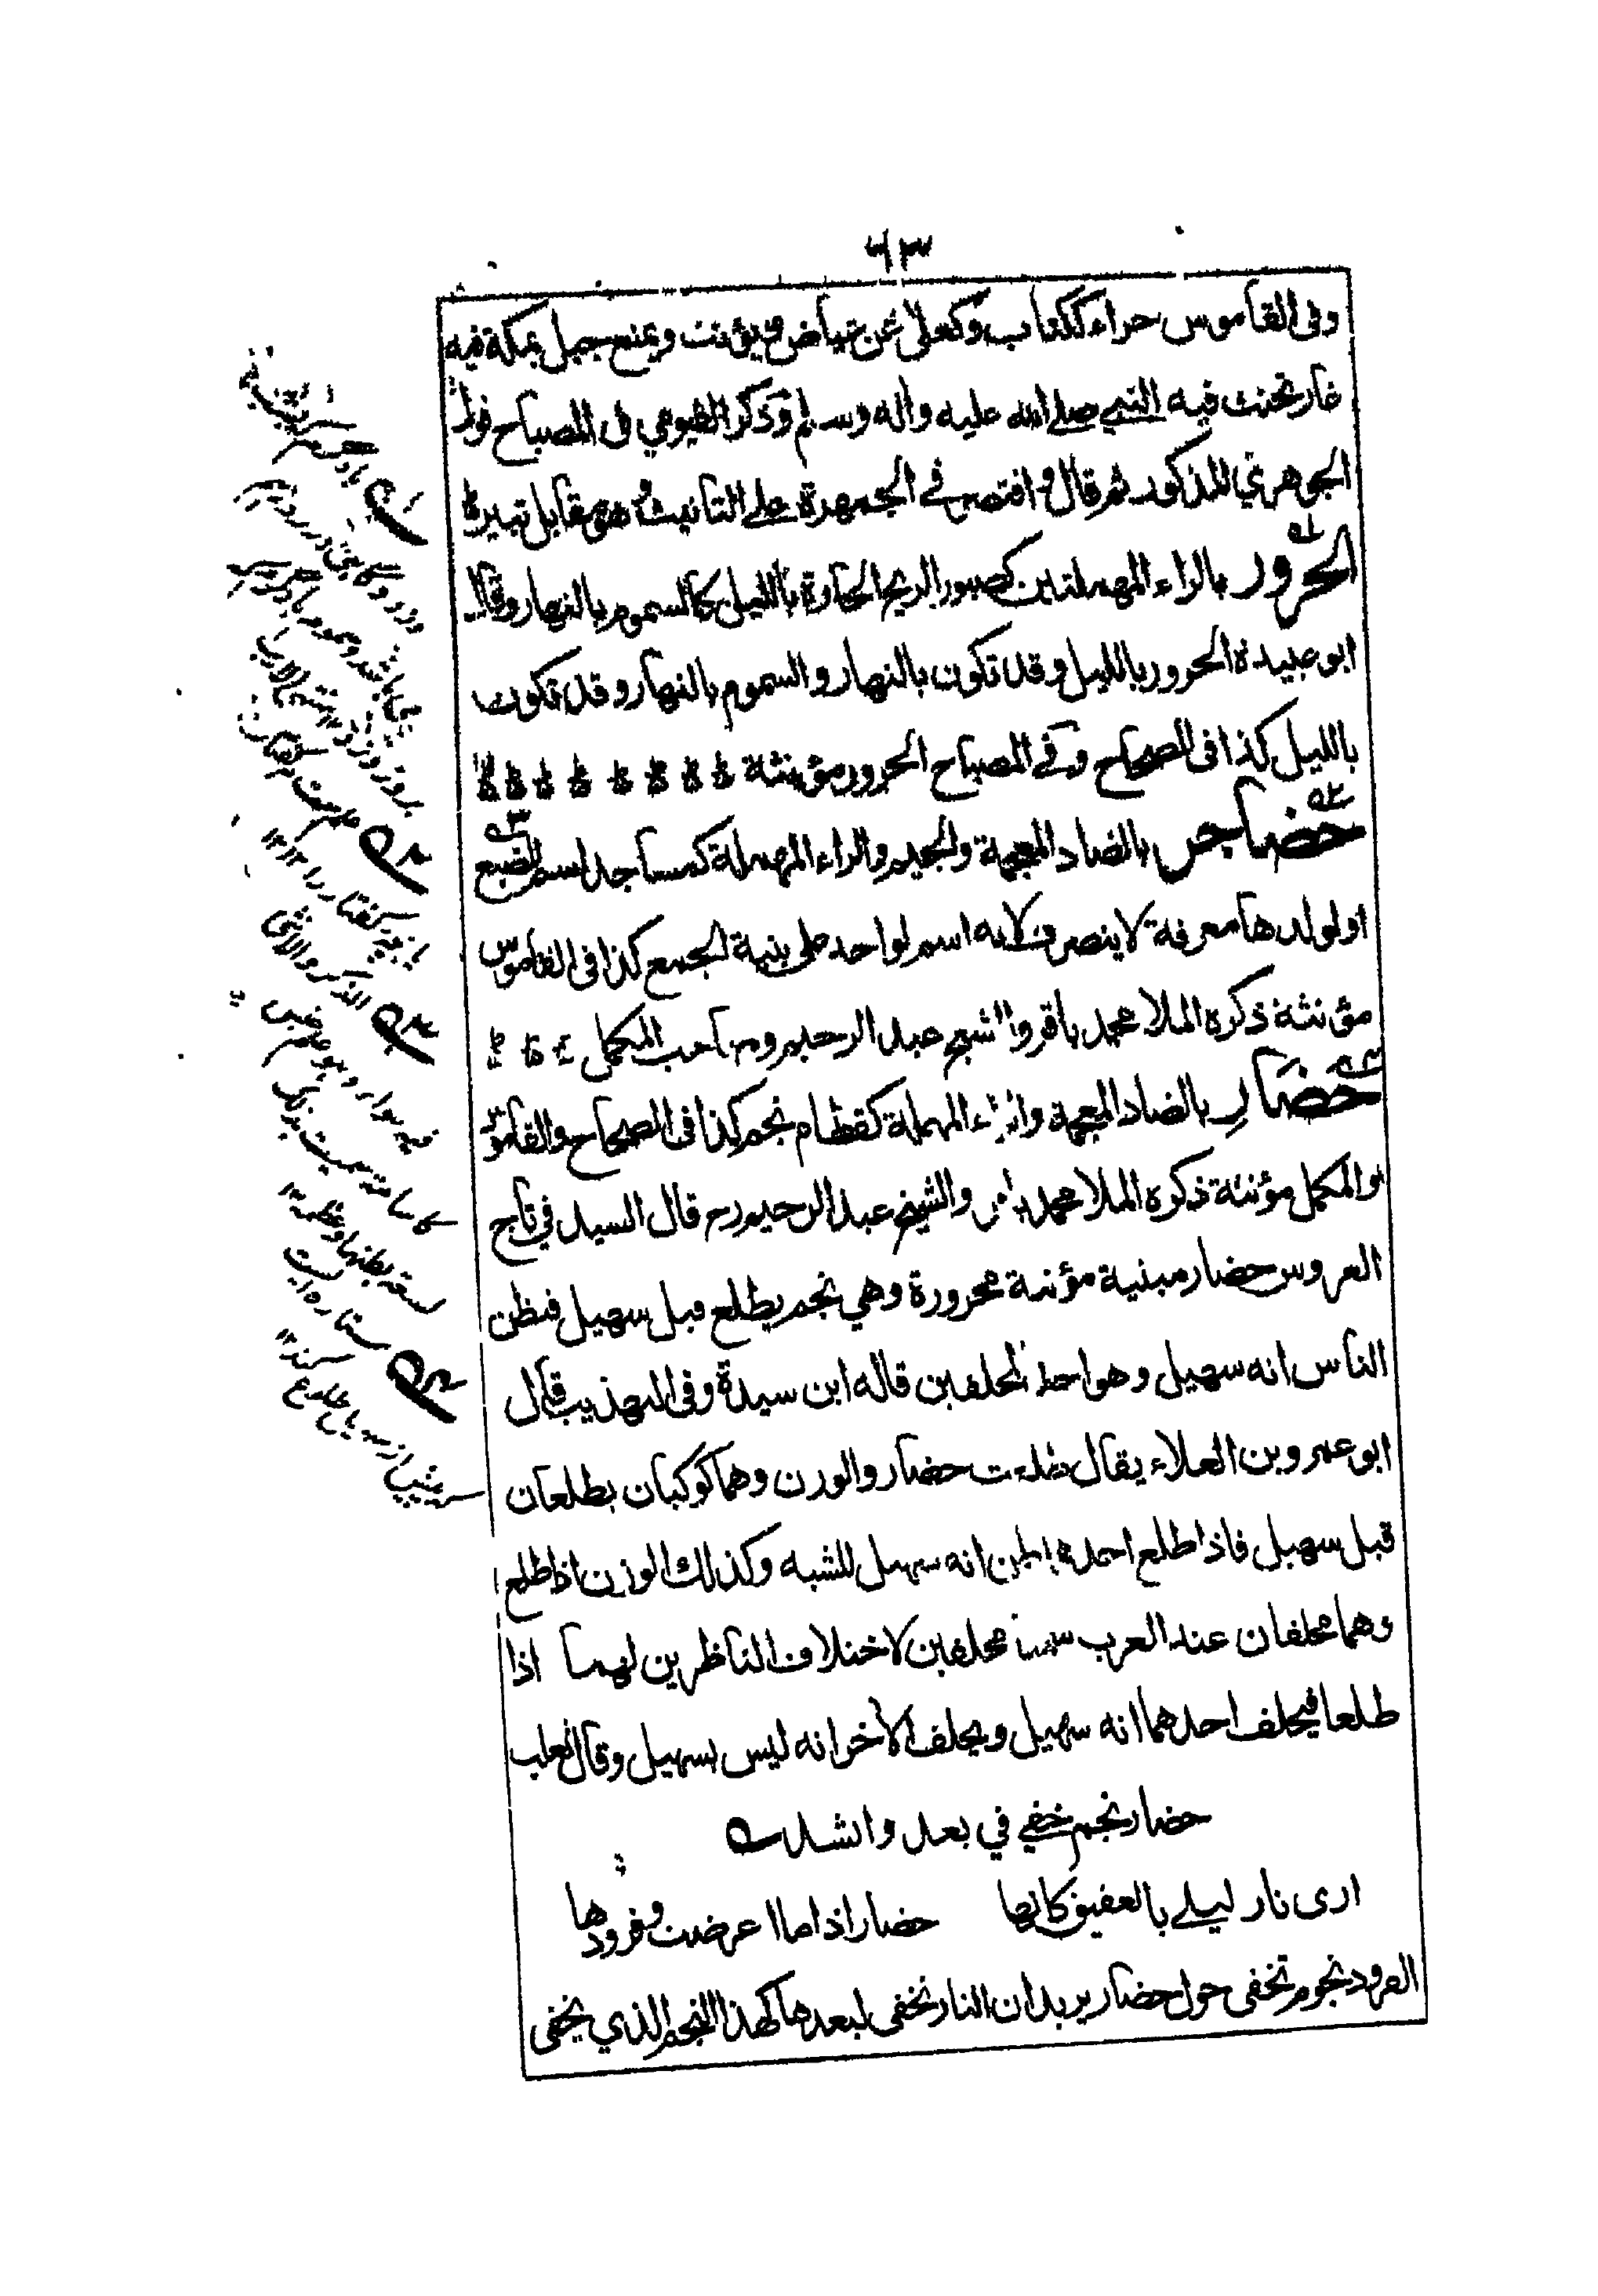 ٦٣
وفي القاموس حراء ككتاب وكعلى عن عياض ويؤنث ويمنع جبل بمكة فيه
غار تحنث فيه النبي صلے الله عليه واله وسلم وذكر الفيومي في المصباح قول
الجوهري المذكور ثم قال واقتصر في الجمهرة علے التانيث وهو مقابل ثبير
الحرور بالراء المهملتين كصبور الريح الحارة بالليل كالسموم بالنهار وقال
ابو عبيدة الحرور بالليل وقد تكون بالنهار والسموم بالنهار وقد تكون
بالليل كذا في الصحاح وفي المصباح الحرور مؤنثة
حضاجر بالضاد المعجمة والجيم والراء المهملة كمساجد اسم للضبع
او لولدها معرفة لا ينصرف لانه اسم لواحد على بنية الجمع كذا في القاموس
مؤنثة ذكره الملا محمد باقر والشيخ عبد الرحيم وصاحب المكمل
حضار بالضاد المعجمة والراء المهملة كقطام نجم كذا في الصحاح والقاموس
والمكمل مؤنثة ذكره الملا محمد باقر والشيخ عبد الرحيم رح قال السيد في تاج
العروس حضار مبنية مؤنثة مجرورة وهي نجم يطلع قبل سهيل فيظن
الناس انه سهيل وهو احد المحلفين قاله ابن سيدة وفي التهذيب قال
ابو عمرو بن العلاء يقال طلعت حضار والوزن وهما كوكبان يطلعان
قبل سهيل فاذا طلع احدهما ظن انه سهيل للشبه وكذلك الوزن اذا طلع
وهما محلفان عند العرب سميا محلفين لاختلاف الناظرين لهما اذا
طلعا فيحلف احدهما انه سهيل ويحلف الاخر انه ليس بسهيل وقال ثعلب
حضار نجم خفي في بعد وانشد
ارى نار ليلے بالعقيق كانها حضار اذا ما اعرضت وفرودها
الفرود نجوم تخفى حول حضار يريد ان النار تخفى لبعدها كهذا النجم الذي يخفى
الذكر والانثى
سميت بذلك
لسعة بطنها وعظمه ١٢
ستاره ايست